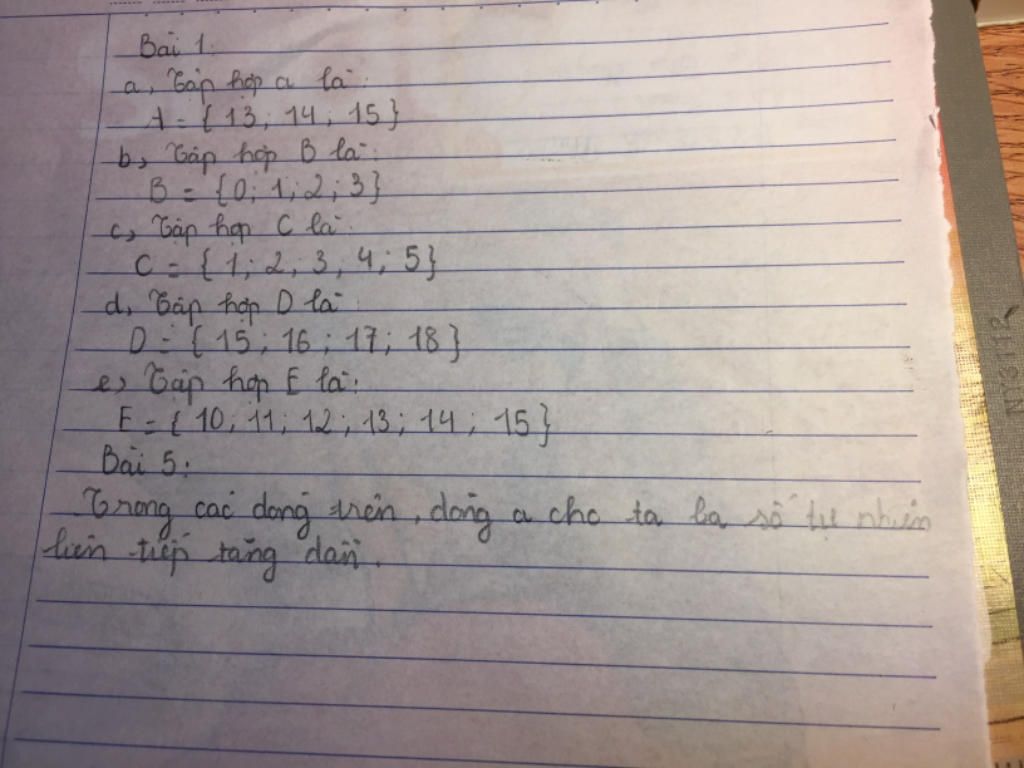 Bài 1:
a, Tập hợp a là:
A = { 13; 14; 15 }
b, Tập hợp B là:
B = { 0; 1; 2; 3 }
c, Tập hợp C là:
C = { 1; 2; 3; 4; 5 }
d, Tập hợp D là:
D = { 15; 16; 17; 18 }
e, Tập hợp E là:
E = { 10; 11; 12; 13; 14; 15 }
Bài 5:
Trong các dòng trên, dòng a cho ta ba số tự nhiên
liên tiếp tăng dần.